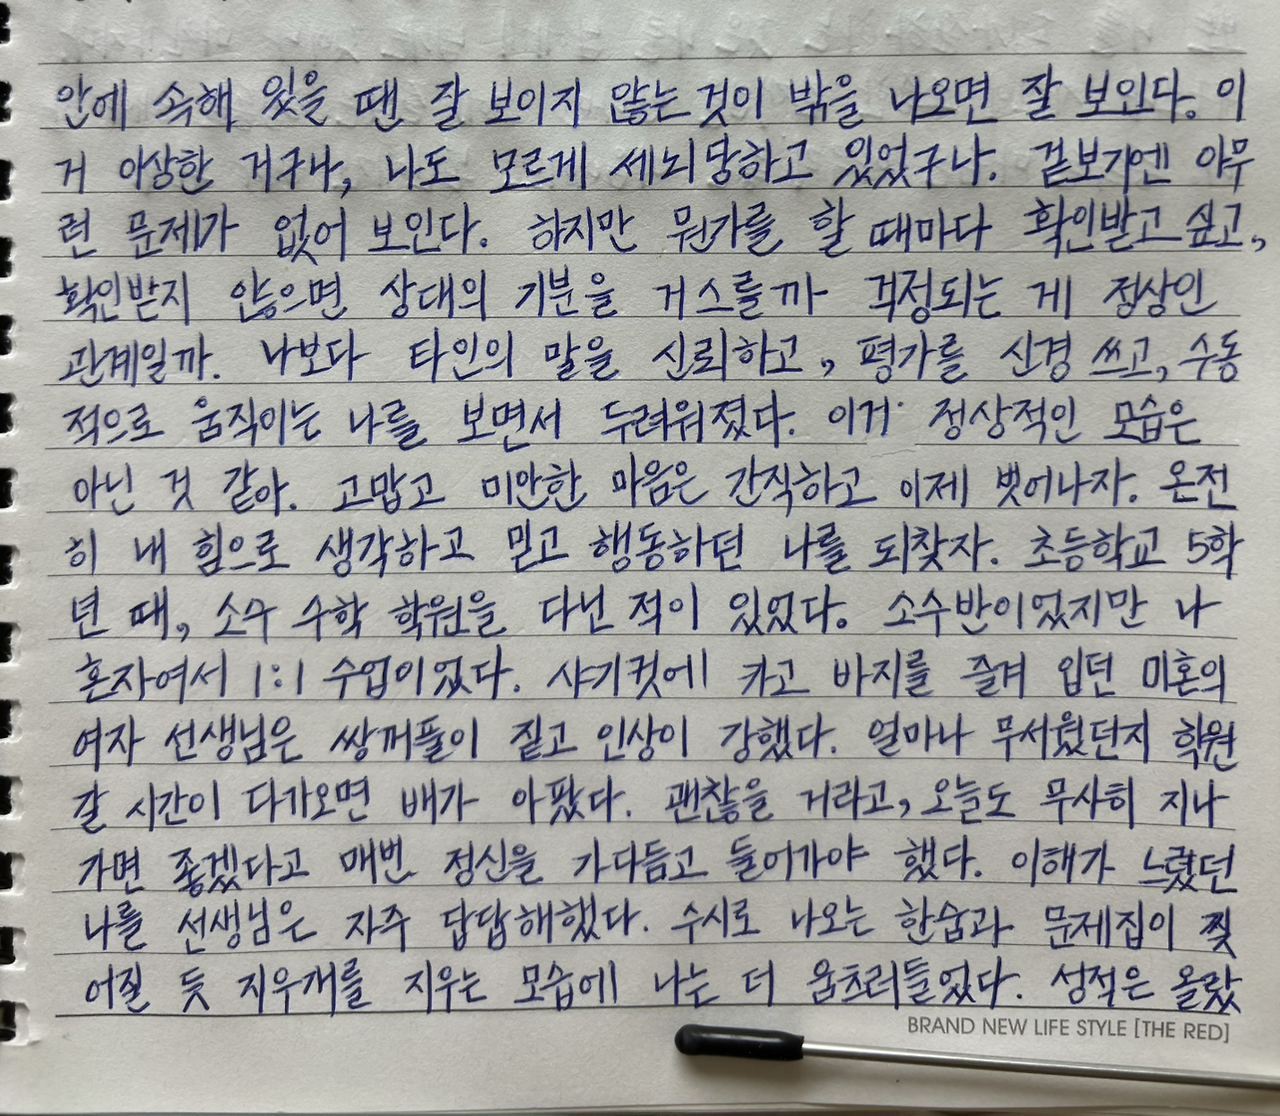 안에 속해 있을 땐 잘 보이지 않는 것이 밖을 나오면 잘 보인다. 이
거 이상한 거구나, 나도 모르게 세뇌당하고 있었구나. 겉보기엔 아무
런 문제가 없어 보인다. 하지만 뭔가를 할 때마다 확인받고 싶고,
확인받지 않으면 상대의 기분을 거스를까 걱정되는 게 정상인
관계일까. 나보다 타인의 말을 신뢰하고, 평가를 신경 쓰고, 수동
적으로 움직이는 나를 보면서 두려워졌다. 이거 정상적인 모습은
아닌 것 같아. 고맙고 미안한 마음은 간직하고 이제 벗어나자. 온전
히 내 힘으로 생각하고 믿고 행동하던 나를 되찾자. 초등학교 5학
년 때, 소수 수학 학원을 다닌 적이 있었다. 소수반이었지만 나
혼자여서 1:1 수업이었다. 샤기컷에 카고 바지를 즐겨 입던 미혼의
여자 선생님은 쌍꺼풀이 짙고 인상이 강했다. 얼마나 무서웠던지 학원
갈 시간이 다가오면 배가 아팠다. 괜찮을 거라고, 오늘도 무사히 지나
가면 좋겠다고 매번 정신을 가다듬고 들어가야 했다. 이해가 느렸던
나를 선생님은 자주 답답해했다. 수시로 나오는 한숨과 문제집이 찢
어질 듯 지우개를 지우는 모습에 나는 더 움츠러들었다. 성적은 올랐
BRAND NEW LIFE STYLE [THE RED]